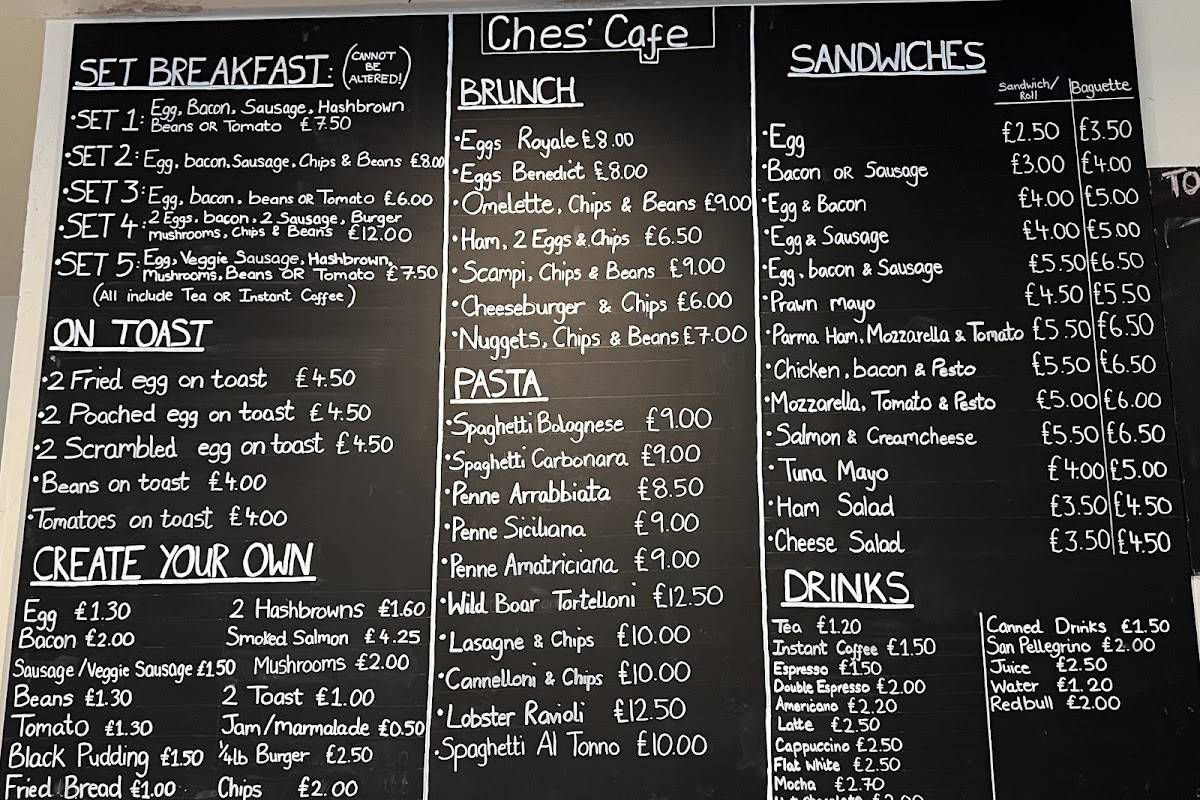 Ches' Cafe
SET BREAKFAST: (CANNOT BE ALTERED!)
•SET 1: Egg, Bacon, Sausage, Hashbrown
Beans OR Tomato £7.50
•SET 2: Egg, bacon, Sausage, Chips & Beans £8.00
•SET 3: Egg, bacon, beans OR Tomato £6.00
•SET 4: 2 Eggs, bacon, 2 Sausage, Burger
mushrooms, Chips & Beans £12.00
•SET 5: Egg, Veggie Sausage, Hashbrown,
Mushrooms, Beans OR Tomato £7.50
(All include Tea OR Instant Coffee)
ON TOAST
•2 Fried egg on toast £4.50
•2 Poached egg on toast £4.50
•2 Scrambled egg on toast £4.50
•Beans on toast £4.00
•Tomatoes on toast £4.00
CREATE YOUR OWN
Egg £1.30
Bacon £2.00
Sausage/Veggie Sausage £1.50
Beans £1.30
Tomato £1.30
Black Pudding £1.50
Fried Bread £1.00
2 Hashbrowns £1.60
Smoked Salmon £4.25
Mushrooms £2.00
2 Toast £1.00
Jam/marmalade £0.50
1/4lb Burger £2.50
Chips £2.00
BRUNCH
•Eggs Royale £8.00
•Eggs Benedict £8.00
•Omelette, Chips & Beans £9.00
•Ham, 2 Eggs & Chips £6.50
•Scampi, Chips & Beans £9.00
•Cheeseburger & Chips £6.00
•Nuggets, Chips & Beans £7.00
PASTA
•Spaghetti Bolognese £9.00
•Spaghetti Carbonara £9.00
•Penne Arrabbiata £8.50
•Penne Siciliana £9.00
•Penne Amatriciana £9.00
•Wild Boar Tortelloni £12.50
•Lasagne & Chips £10.00
•Cannelloni & Chips £10.00
•Lobster Ravioli £12.50
•Spaghetti Al Tonno £10.00
SANDWICHES
Sandwich/Roll Baguette
•Egg £2.50 £3.50
•Bacon OR Sausage £3.00 £4.00
•Egg & Bacon £4.00 £5.00
•Egg & Sausage £4.00 £5.00
•Egg, bacon & Sausage £5.50 £6.50
•Prawn mayo £4.50 £5.50
•Parma Ham, Mozzarella & Tomato £5.50 £6.50
•Chicken, bacon & Pesto £5.50 £6.50
•Mozzarella, Tomato & Pesto £5.00 £6.00
•Salmon & Creamcheese £5.50 £6.50
•Tuna Mayo £4.00 £5.00
•Ham Salad £3.50 £4.50
•Cheese Salad £3.50 £4.50
DRINKS
Tea £1.20
Instant Coffee £1.50
Espresso £1.50
Double Espresso £2.00
Americano £2.20
Latte £2.50
Cappuccino £2.50
Flat White £2.50
Mocha £2.70
Canned Drinks £1.50
San Pellegrino £2.00
Juice £2.50
Water £1.20
Redbull £2.00
TO